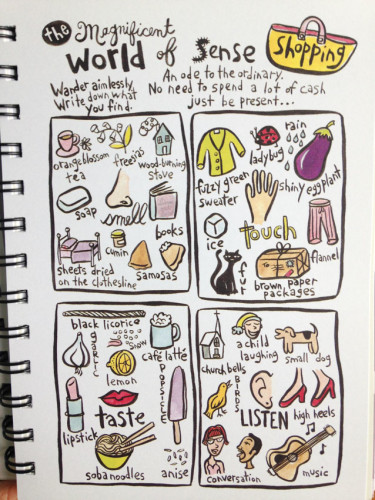 the Magnificent
World of Sense
shopping
Wander aimlessly.
Write down what
you find.
An ode to the ordinary.
No need to spend a lot of cash
just be present...
orange blossom
tea
freesias
wood-burning
stove
soap
smell
books
cumin
sheets dried
on the clothesline
samosas
rain
ladybug
fuzzy green
sweater
shiny eggplant
ice
touch
flannel
fur
brown paper
packages
black licorice
garlic
snow
café latté
lemon
popsicle
taste
lipstick
soba noodles
anise
church bells
a child
laughing
small dog
birds
LISTEN
high heels
conversation
music